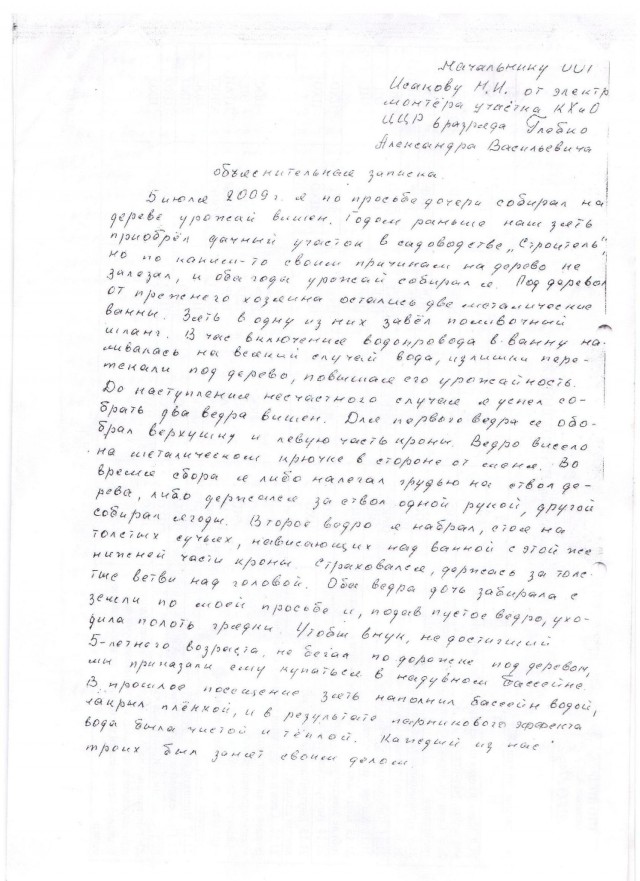 Начальнику
Исакову Н.И. от электро
монтёра участка КХиО
ЦЦР разряда
Александра Васильевича
объяснительная записка.
5 июля 2009г. я по просьбе дочери собирал на
дереве урожай вишен. Годом раньше наш зять
приобрёл дачный участок в садоводстве „Строитель",
но по каким-то своим причинам на дерево не
залезал, и оба года урожай собирал я. Под деревом
от прежнего хозяина остались две металические
ванны. Зять в одну из них завёл поливочный
шланг. В час включения водопровода в ванну на-
ливалась на всякий случай вода, излишки пере-
текали под дерево, повышая его урожайность.
До наступления несчастного случая я успел со-
брать два ведра вишен. Для первого ведра я обо-
брал верхушку и левую часть кроны. Ведро висело
на металическом крючке в стороне от меня. Во
время сбора я либо налегал грудью на ствол де-
рева, либо держался за ствол одной рукой, другой
собирал ягоды. Второе ведро я набрал, стоя на
толстых сучьях, нависающих над ванной с этой же
нижней части кроны. Страховался, держась за толс-
тые ветви над головой. Оба ведра дочь забирала с
земли по моей просьбе и, подав пустое ведро, ухо-
дила полоть грядки. Чтобы внук, не достигший
5-летнего возраста, не бегал по дорожке под деревом,
мы приказали ему купаться в надувном бассейне.
В прошлое посещение зять наполнил бассейн водой,
закрыл плёнкой, и в результате парникового эффекта
вода была чистой и тёплой. Каждый из нас
троих был занят своим делом.